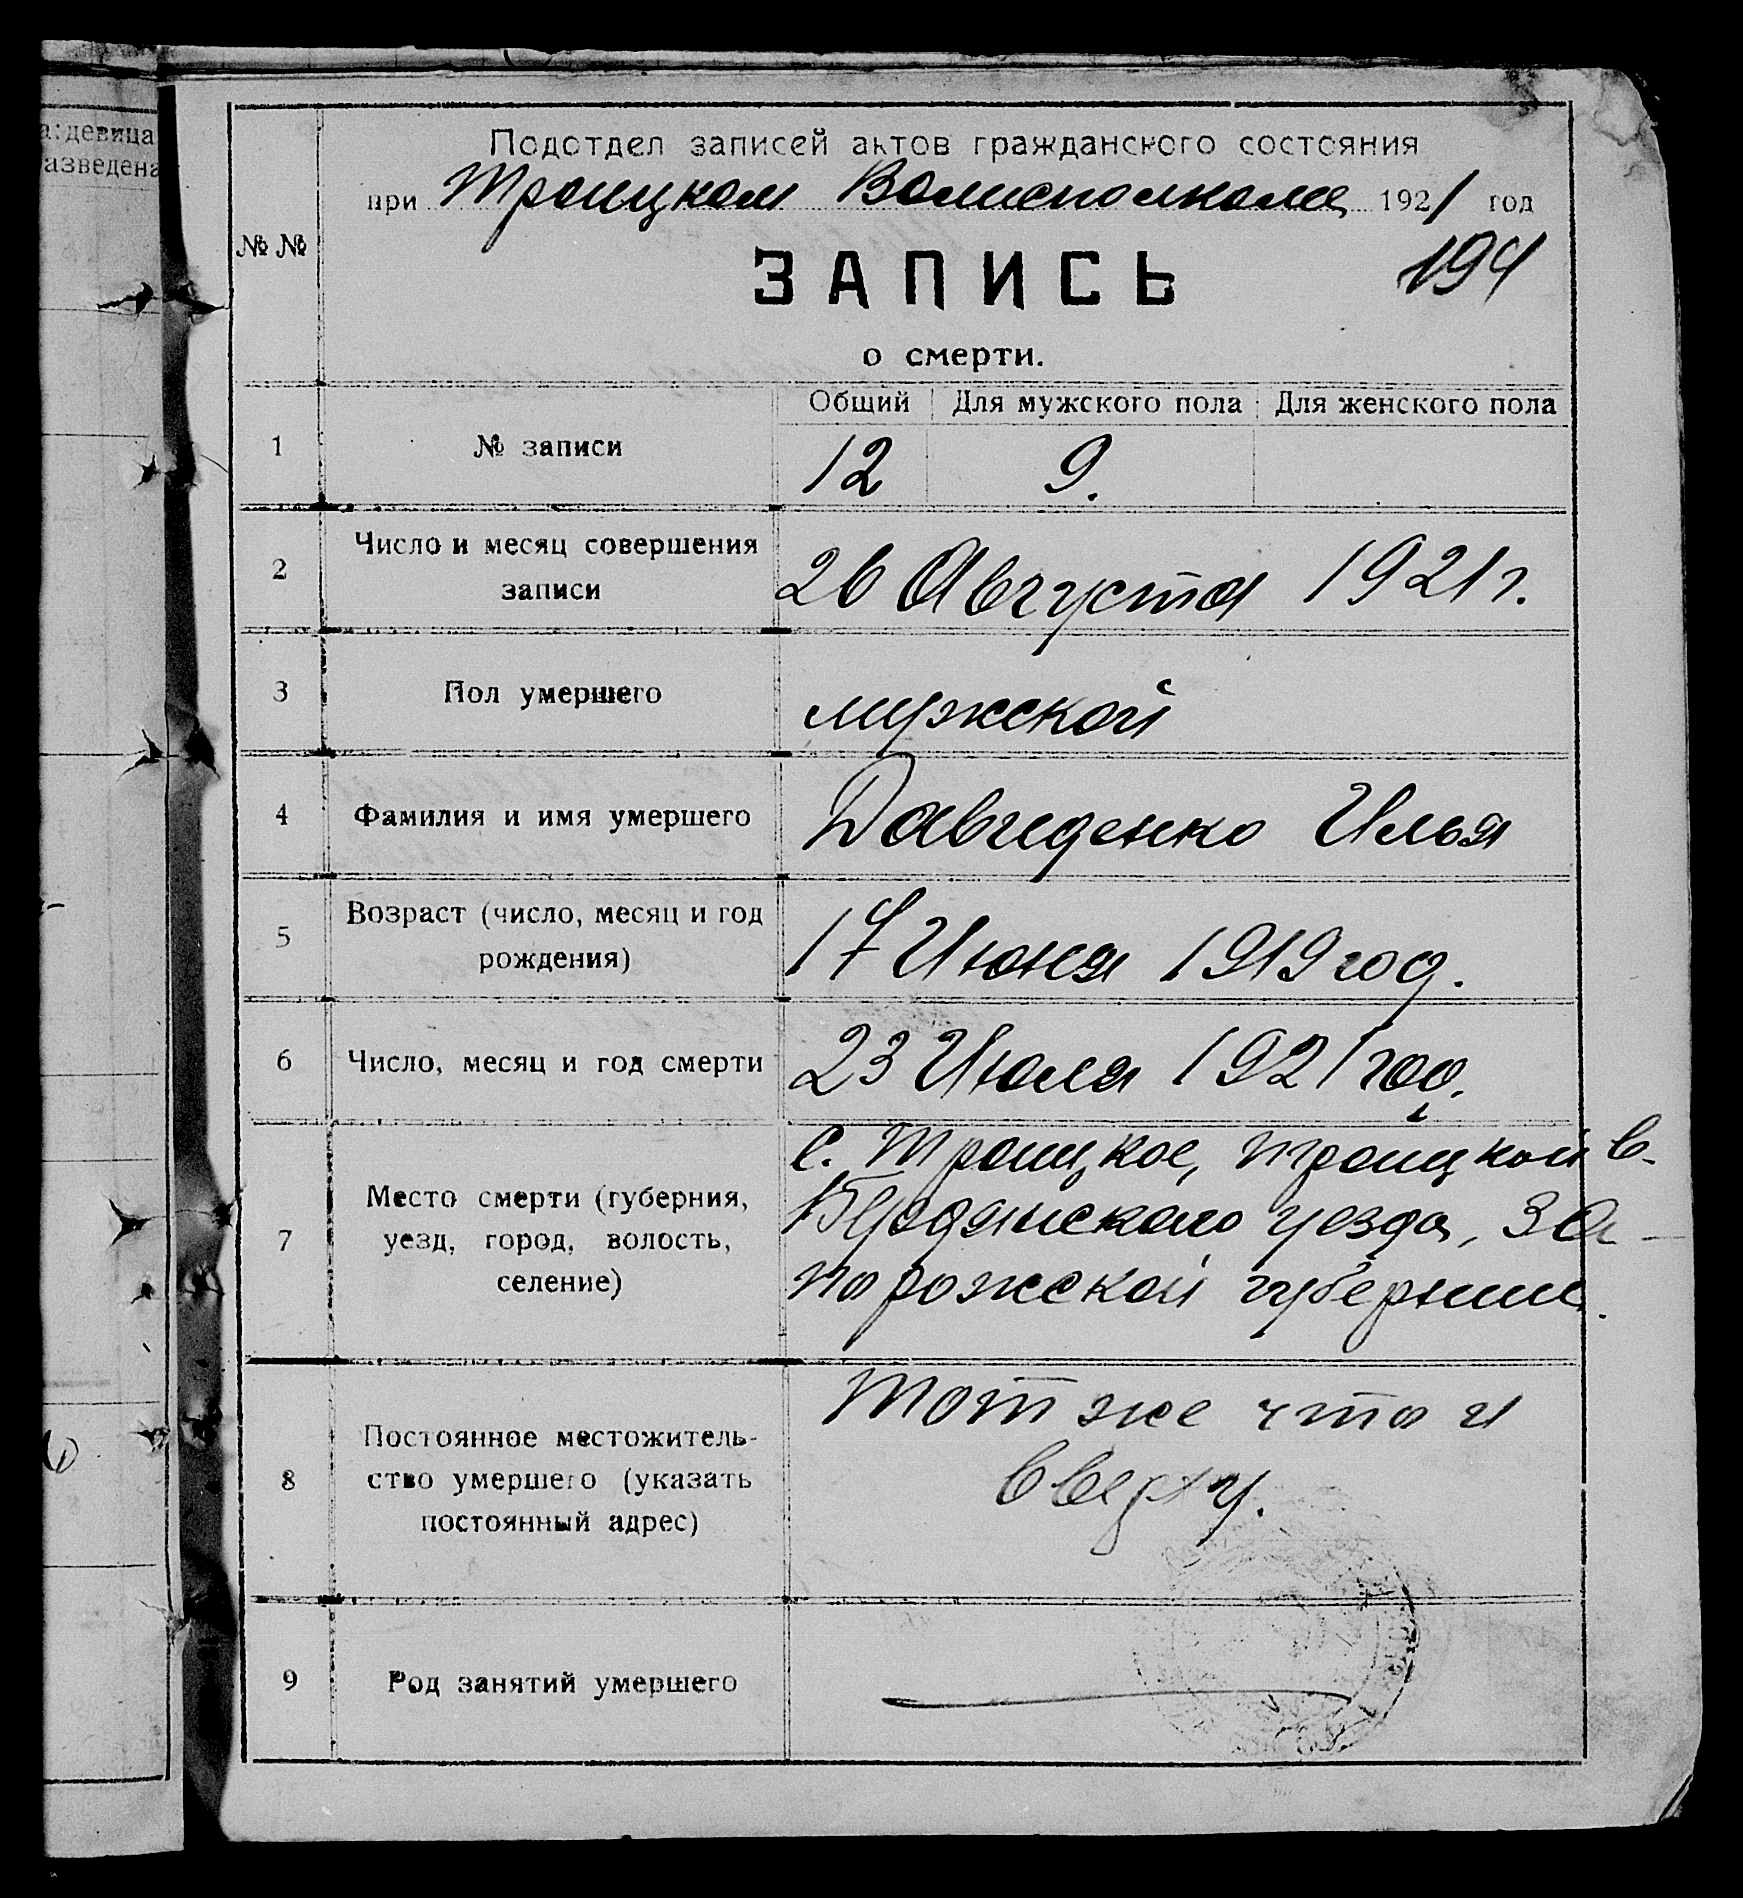 а: девица
азведена
Подотдел записей актов гражданского состояния
при Троицком Волисполкоме 1921 год
№ №
194
ЗАПИСЬ
о смерти.
Общий Для мужского пола Для женского пола
1 № записи 12 9.
2 Число и месяц совершения
записи
26 Августа 1921 г.
3 Пол умершего мужской
4 Фамилия и имя умершего Давиденко Илья
5 Возраст (число, месяц и год
рождения)
17 Июня 1919 год.
6 Число, месяц и год смерти 23 Июля 1921 год.
7 Место смерти (губерния,
уезд, город, волость,
селение)
с. Троицкое, Троицкой в.
Бердянского уезда, За-
порожской губернии.
8 Постоянное местожитель-
ство умершего (указать
постоянный адрес)
Тот же что и
вверху.
9 Род занятий умершего